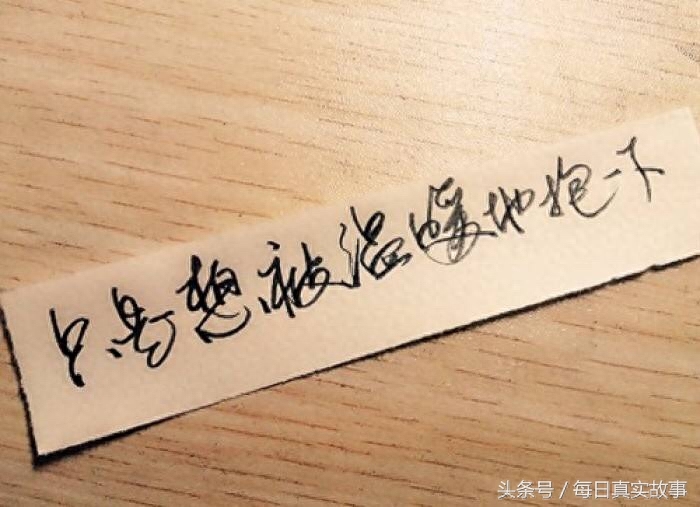 只是想被温暖地抱一下
头条号／每日真实故事